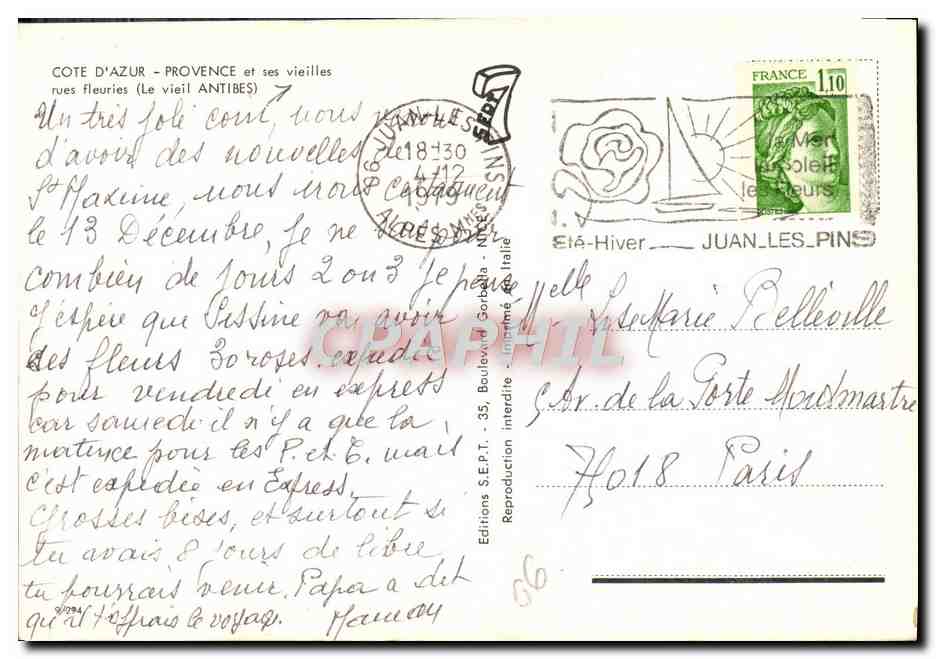 COTE D'AZUR - PROVENCE et ses vieilles
rues fleuries (Le vieil ANTIBES)
Un très joli coin, nous
d'avoir des nouvelles de
St Maxime, nous irons certainement
le 13 Décembre, je ne sais pour
combien de jours 2 ou 3 je pense
J'espère que Sissine va avoir
des fleurs 30 roses expédiée
pour vendredi en express
car samedi il n'y a que la
matinée pour les P. et T. mais
c'est expédiée en Express.
Grosses bises, et surtout si
tu avais 8 jours de libre
tu pourrais venir. Papa a dit
qu'il t'offrais le voyage. Maman
9/294
Editions S.E.P.T. - 35, Boulevard Gorbella - NICE
Reproduction interdite - Imprimé en Italie
SEPT
06 JUAN-LES-PINS
18H30
4-12
1979
ALPES-MMES
FRANCE 1,10
la Mer
le Soleil
les Fleurs
Eté-Hiver JUAN_LES_PINS
CPAPHIL
Melle
Belleville
5 Av. de la Porte Montmartre
75018 Paris
06